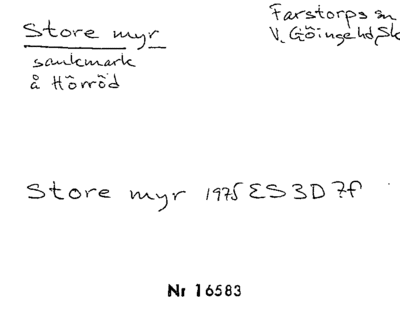 Store myr
Farstorps sn
sankmark
V. Göinge hd, Sk
å Hörröd
Store myr 1975 ES 3D 7f
Nr 16583